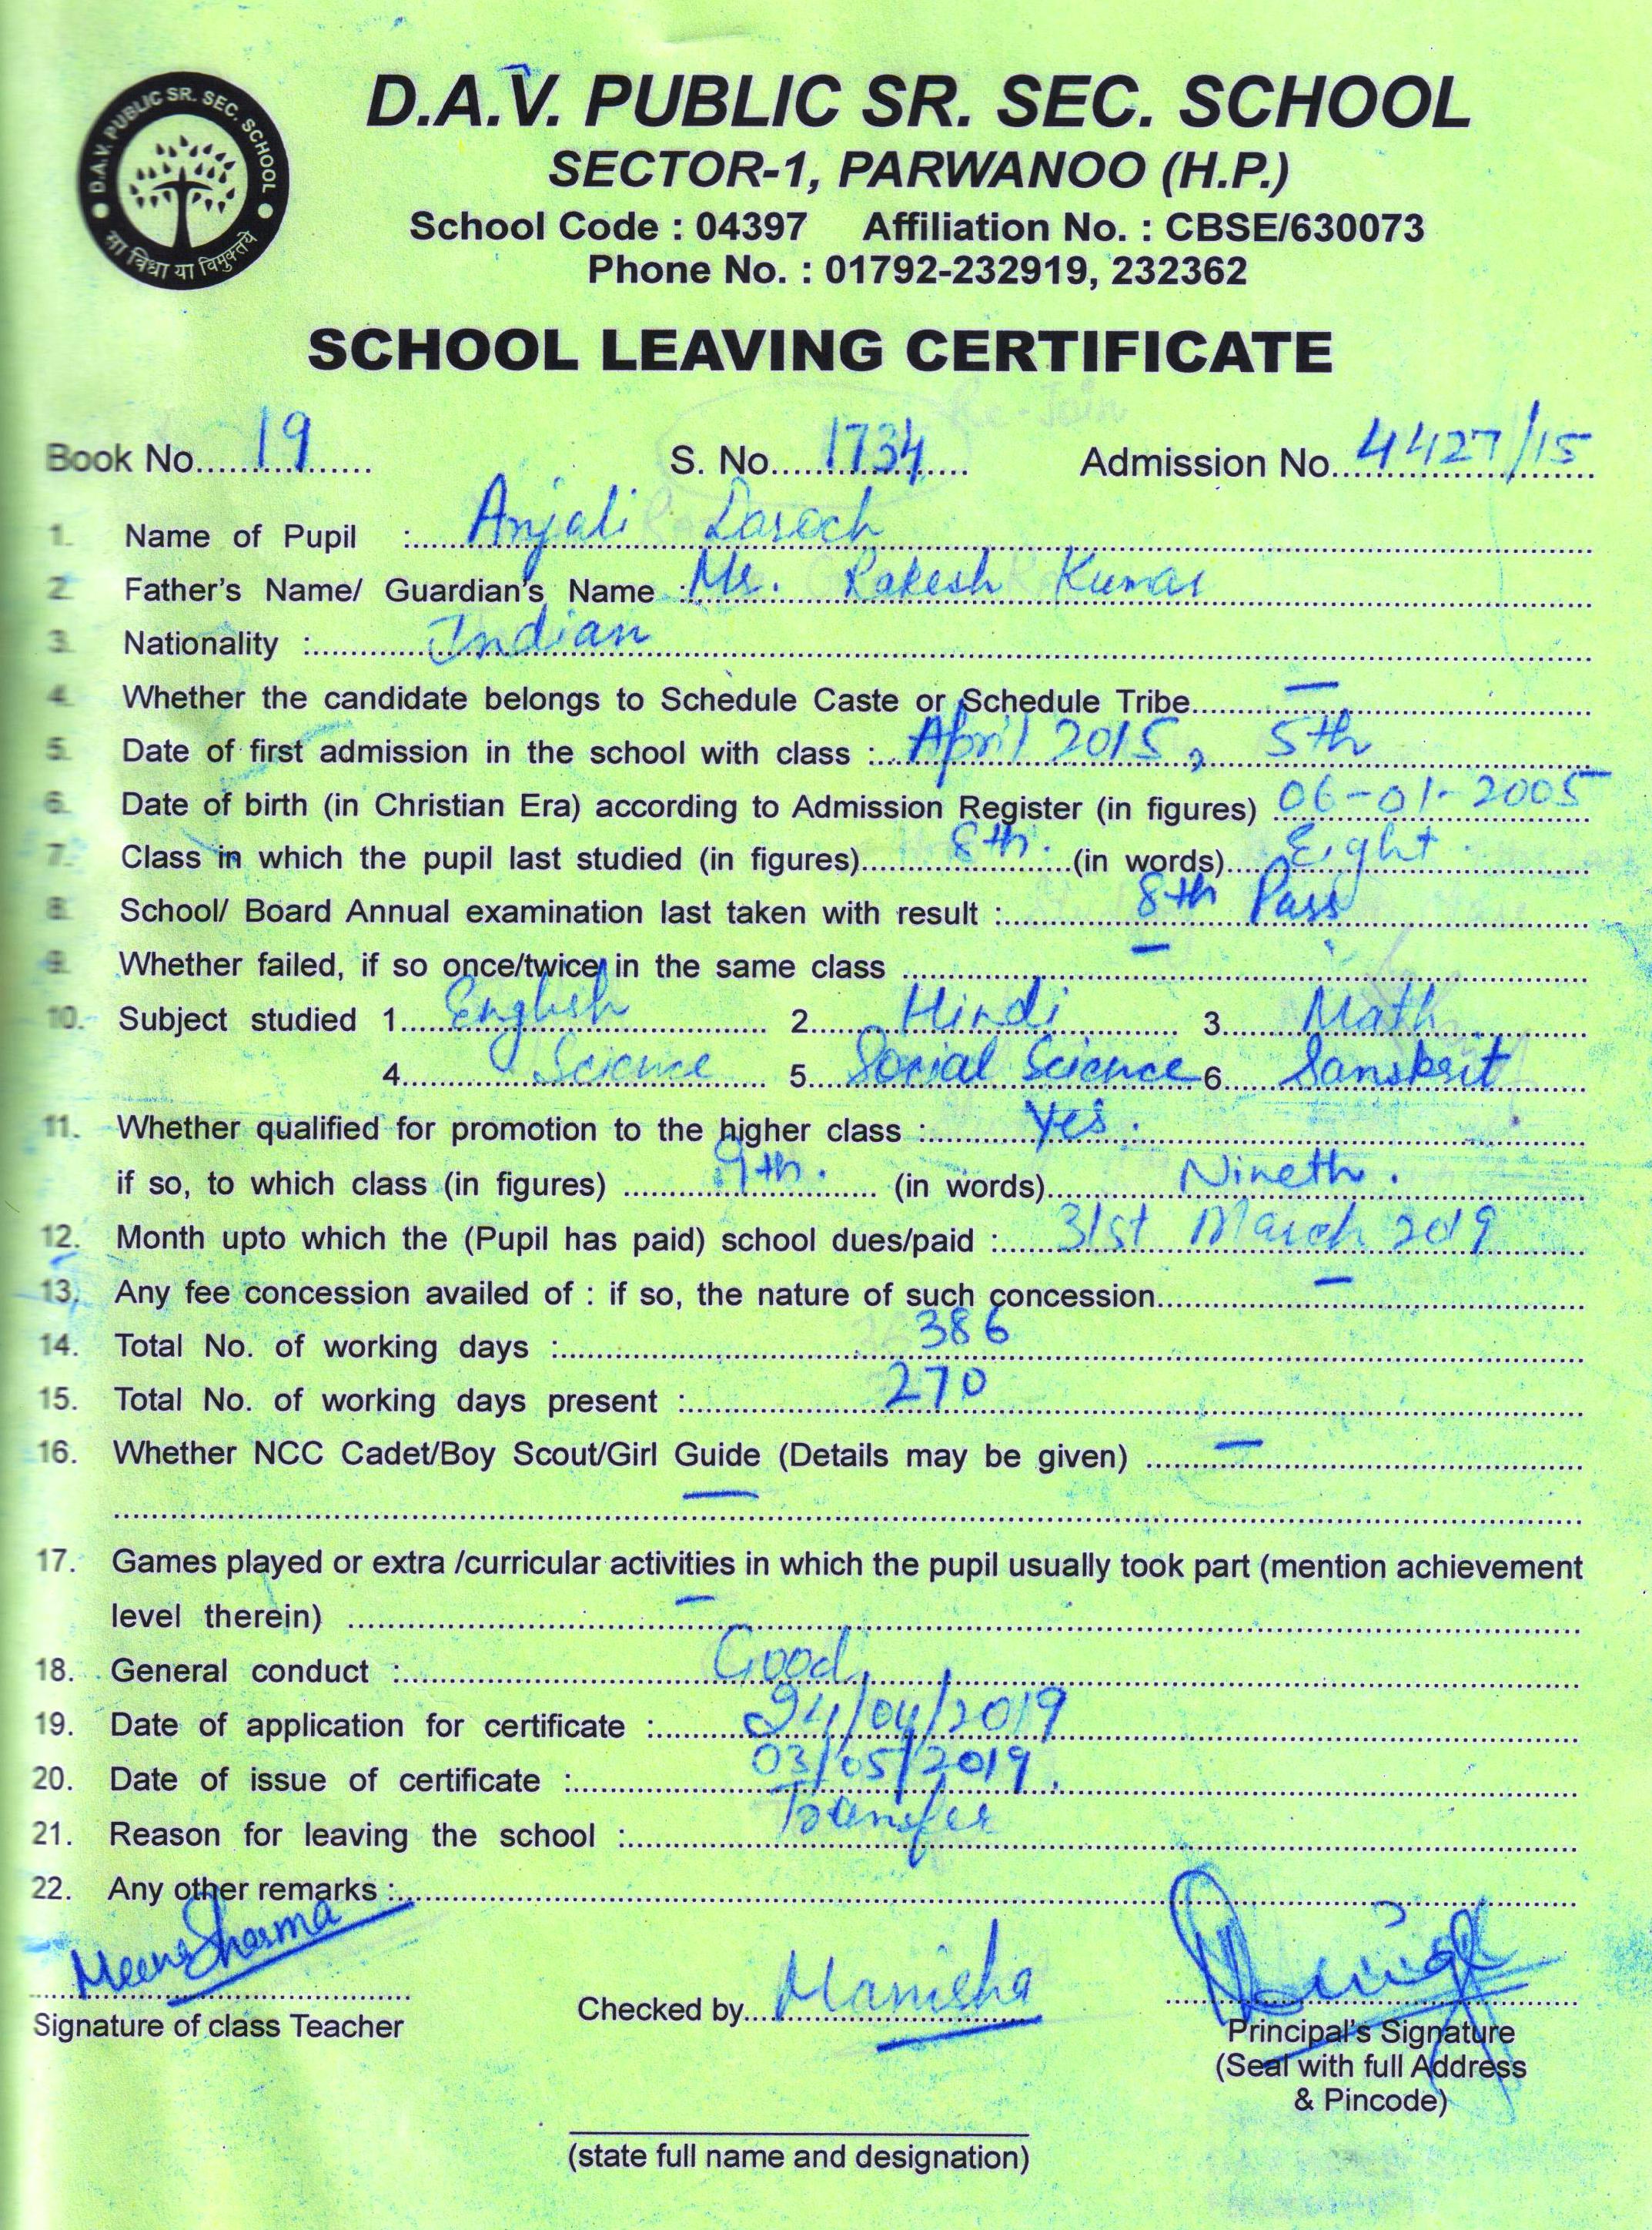 D.A.V. PUBLIC SR. SEC. SCHOOL
D.A.V. PUBLIC SR. SEC. SCHOOL
सा विद्या या विमुक्तये
SECTOR-1, PARWANOO (H.P.)
School Code : 04397 Affiliation No. : CBSE/630073
Phone No. : 01792-232919, 232362
SCHOOL LEAVING CERTIFICATE
Re-Join
Book No. 19 S. No. 1734 Admission No. 4427/15
1. Name of Pupil : Anjali Daroch
2. Father's Name/ Guardian's Name : Mr. Rakesh Kumar
3. Nationality : Indian
4. Whether the candidate belongs to Schedule Caste or Schedule Tribe. —
5. Date of first admission in the school with class : April 2015, 5th
6. Date of birth (in Christian Era) according to Admission Register (in figures) 06-01-2005
7. Class in which the pupil last studied (in figures) 8th. (in words) Eight.
8. School/ Board Annual examination last taken with result : 8th Pass
9. Whether failed, if so once/twice in the same class —
10. Subject studied 1. English 2. Hindi 3. Math
4. Science 5. Social Science 6. Sanskrit
11. Whether qualified for promotion to the higher class : Yes.
if so, to which class (in figures) 9th. (in words) Nineth.
12. Month upto which the (Pupil has paid) school dues/paid : 31st March 2019
13. Any fee concession availed of : if so, the nature of such concession. —
14. Total No. of working days : 386
15. Total No. of working days present : 270
16. Whether NCC Cadet/Boy Scout/Girl Guide (Details may be given) —
—
17. Games played or extra /curricular activities in which the pupil usually took part (mention achievement
level therein) —
18. General conduct : Good
19. Date of application for certificate : 24/04/2019
20. Date of issue of certificate : 03/05/2019.
21. Reason for leaving the school : Transfer
22. Any other remarks :
Meena Sharma
Signature of class Teacher
Checked by. Manisha
Principal's Signature
(Seal with full Address
& Pincode)
(state full name and designation)